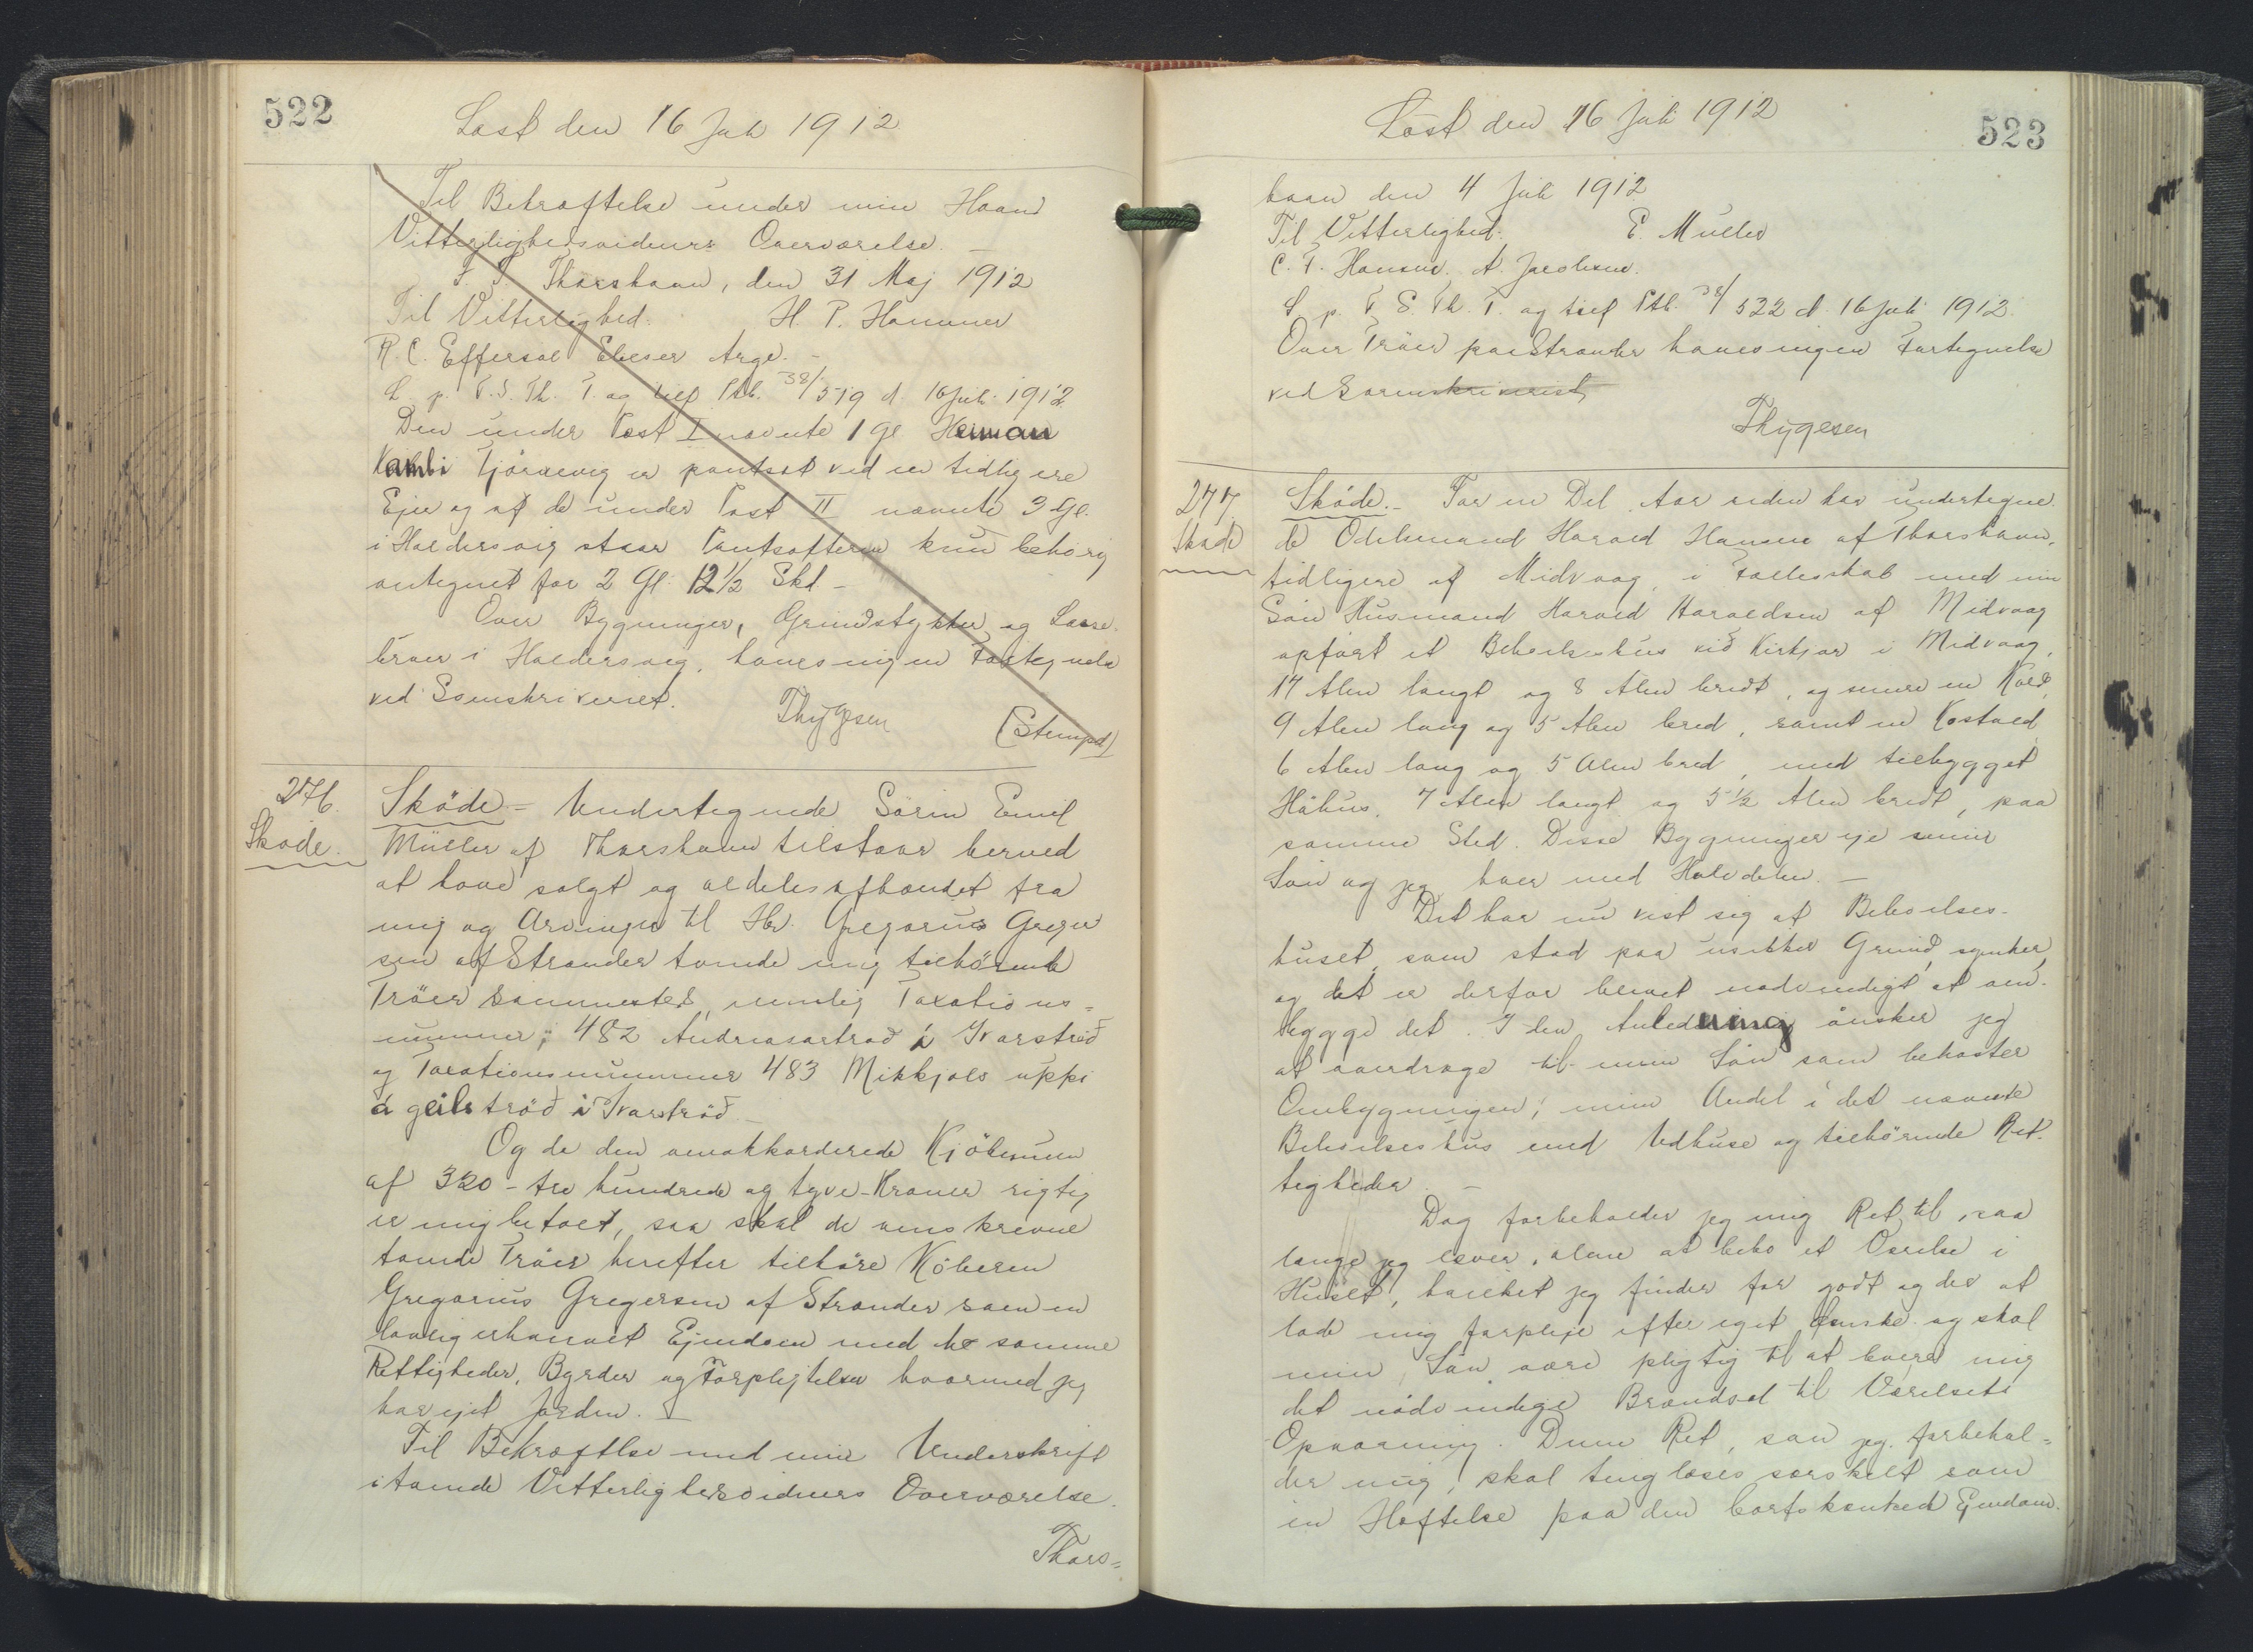 522
Læst den 16 Juli 1912
Til Bekræftelse under min Haand
Vitterlighedsvidners Overværelse. —
Thorshavn, den 31 Maj 1912
Til Vitterlighed. H. P. Hammer
R. C. Effersøe Elieser Arge. —
L. p. F. S. Th. T. og tilf Ptb. 38/519 d. 16 Juli 1912.
Den under Post I nævnte 1 Gl Heiman
Kambi Tjörnevig er pantsat ved en tidligere
Ejer og af de under Post II nævnte 3 Gl.
i Haldersvig staar Pantsætteren kun behörig
antegnet for 2 Gl. 12½ Skd —
Over Bygninger, Grundstykker og
i Haldersvig, haves ingen Fortegnelse
ved Sorenskriveriet. Thygesen
(Stempel)
276.
Sköde.
Sköde — Undertegnede Sörin Emil
Müller af Thorshavn tilstaar herved
at have solgt og aldeles afhændet fra
mig og Arvinger til Hr. Gregorius Greger
sen af Strænder tvende mig tilhörende
Tröer sammesteds, nemlig Taxations=
nummer; 482 Andreasartrøð á Ivarströð
og Taxationsnummer 483 Mikkjals uppi
á geilströð á Ivarströð —
Og da den omakkorderede Kjöbesum
af 320 - tre hundrede og tyve - Kroner rigtig
er mig betalt, saa skal de omskrevne
tvende Tröer herefter tilhöre Köberen
Gregorius Gregersen af Strænder som en
lovlig erhvervet Ejendom med de samme
Rettigheder, Byrder og Forpligtelser hvormed jeg
har ejet Jorden. —
Til Bekræftelse med min Underskrift
i tvende Vitterlighedsvidners Overværelse.
Thors=
523
Læst den 16 Juli 1912
havn den 4 Juli 1912
Til Vitterlighed. E. Müller
C. F. Hansen. A. Jacobsen.
L. p. F. S. Th. T. og tilf Ptb. 38/522 d. 16 Juli 1912.
Over Tröer paa Strænder haves ingen Fortegnelse
ved Sorenskriveriet
Thygesen
277.
Sköde
Sköde. — For en Del Aar siden har undertegne
de Odelsmand Harald Hansen af Thorshavn,
tidligere af Midvaag, i Fællesskab med min
Sön Husmand Harald Haraldsen af Midvaag
opfört et Beboelseshus við Kirkjar i Midvaag,
17 Alen langt og 8 Alen bredt, og senere en
9 Alen lang og 5 Alen bred, samt en Kostald
6 Alen lang og 5 Alen bred, med tilbygget
Höhus, 7 Alen langt og 5½ Alen bredt, paa
samme Sted. Disse Bygninger eje min
Sön og jeg hver med Halvdelen. —
Det har nu vist sig at Beboelses-
huset, som stod paa usikker Grund, synker,
og det er derfor blevet nødvendigt at om-
bygge det. I den Anledning önsker jeg
at overdrage til min Sön som bekoster
Ombygningen; min Andel i det nævnte
Beboelseshus med Udhuse og tilhörende Ret-
tigheder. —
Dog forbeholder jeg mig Ret til, saa
længe jeg lever, alene at bebo et Værelse i
Huset, hvilket jeg finder for godt og der at
lade mig forpleje efter eget Ønske og skal
min Sön være pligtig til at levere mig
det nödvendige Brændsel til Værelsets
Opvarmning. Denne Ret, som jeg forbehol=
der mig, skal tinglæses særskilt som
en Hæftelse paa den bortskænkede Ejendom.